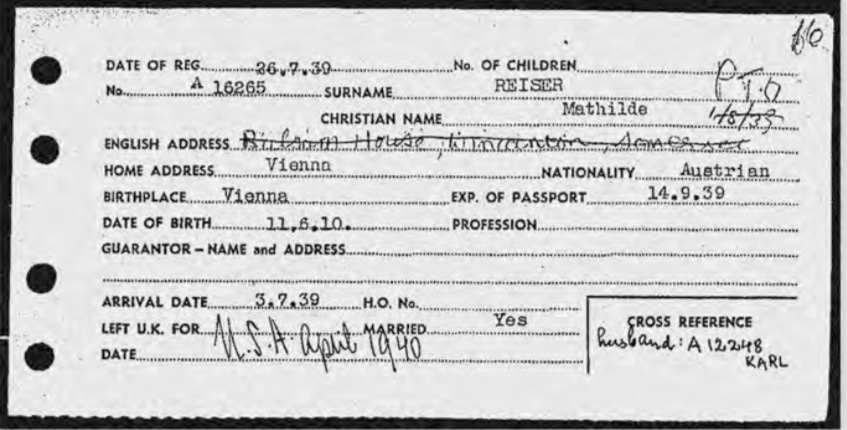 16
DATE OF REG. 26.7.39 No. OF CHILDREN
No. A 16265 SURNAME REISER P.T.O
CHRISTIAN NAME Mathilde 1/8/39
ENGLISH ADDRESS House, Wincanton, Somerset
HOME ADDRESS Vienna NATIONALITY Austrian
BIRTHPLACE Vienna EXP. OF PASSPORT 14.9.39
DATE OF BIRTH 11.6.10. PROFESSION
GUARANTOR – NAME and ADDRESS
ARRIVAL DATE 3.7.39 H.O. No.
LEFT U.K. FOR U.S.A. April 1940 MARRIED Yes
DATE
CROSS REFERENCE
husband: A 12248
KARL